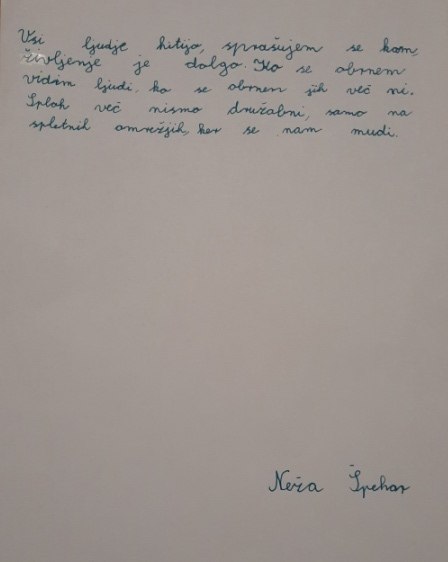 Vsi ljudje hitijo, sprašujem se kam,
življenje je dolgo. Ko se obrnem
vidim ljudi, ko se obrnem jih več ni.
Sploh več nismo družabni, samo na
spletnih omrežjih, ker se nam mudi.
Neža Špehar